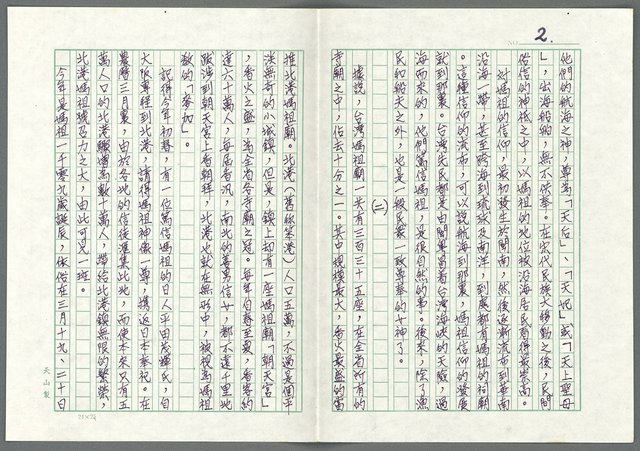 2.
NO.
他們的航海之神，尊為「天后」、「天妃」或「天上聖母
」，出海船舶，無不供奉。在宋代民族大移動之後，民間
俗信的神祇之中，以媽祖的地位被沿海居民看得最崇高。
對媽祖的信仰，最初發生於閩南，然後逐漸流布到華南
沿海一帶，甚至跨海到琉球及南洋，到處都有媽祖的祠廟
。這種信仰的流布，可以說航海到那裏，媽祖信仰的發展
就到那裏。台灣先民都是由閩粵冒着台灣海峽的天險，過
海而來的，他們篤信媽祖，是很自然的事。後來，除了漁
民和船夫之外，也是一般民眾一致尊奉的女神了。
(二)
據說，台灣媽祖廟一共有三百三十五座，在全省所有的
寺廟之中，佔去十分之一。其中規模最大，香火最盛的當
推北港媽祖廟。北港（舊稱笨港）人口五萬，不過是個平
淡無奇的小城鎮，但是，鎮上却有一座媽祖廟「朝天宮」
，香火之盛，為全省各寺廟之冠。每年自春至夏，香客約
達六十萬人，每屆香汛，南北的善男信女，都不遠千里地
跋涉到朝天宮上香朝拜，北港也就在無形中，被視為媽祖
教的「麥加」。
記得今年初春，有一位篤信媽祖的日人平田茂輝氏，自
大阪專程到北港，請得媽祖神像一尊，携返日本奉祀。在
農曆三月裏，由於各地的信徒滙集此地，而使本來只有五
萬人口的北港驟增為數十萬人，帶給北港鎮無限的繁榮，
北港媽祖號召力之大，由此可見一班。
今年是媽祖一千零九歲誕辰，依俗在三月十九、二十日
天山製
25×24